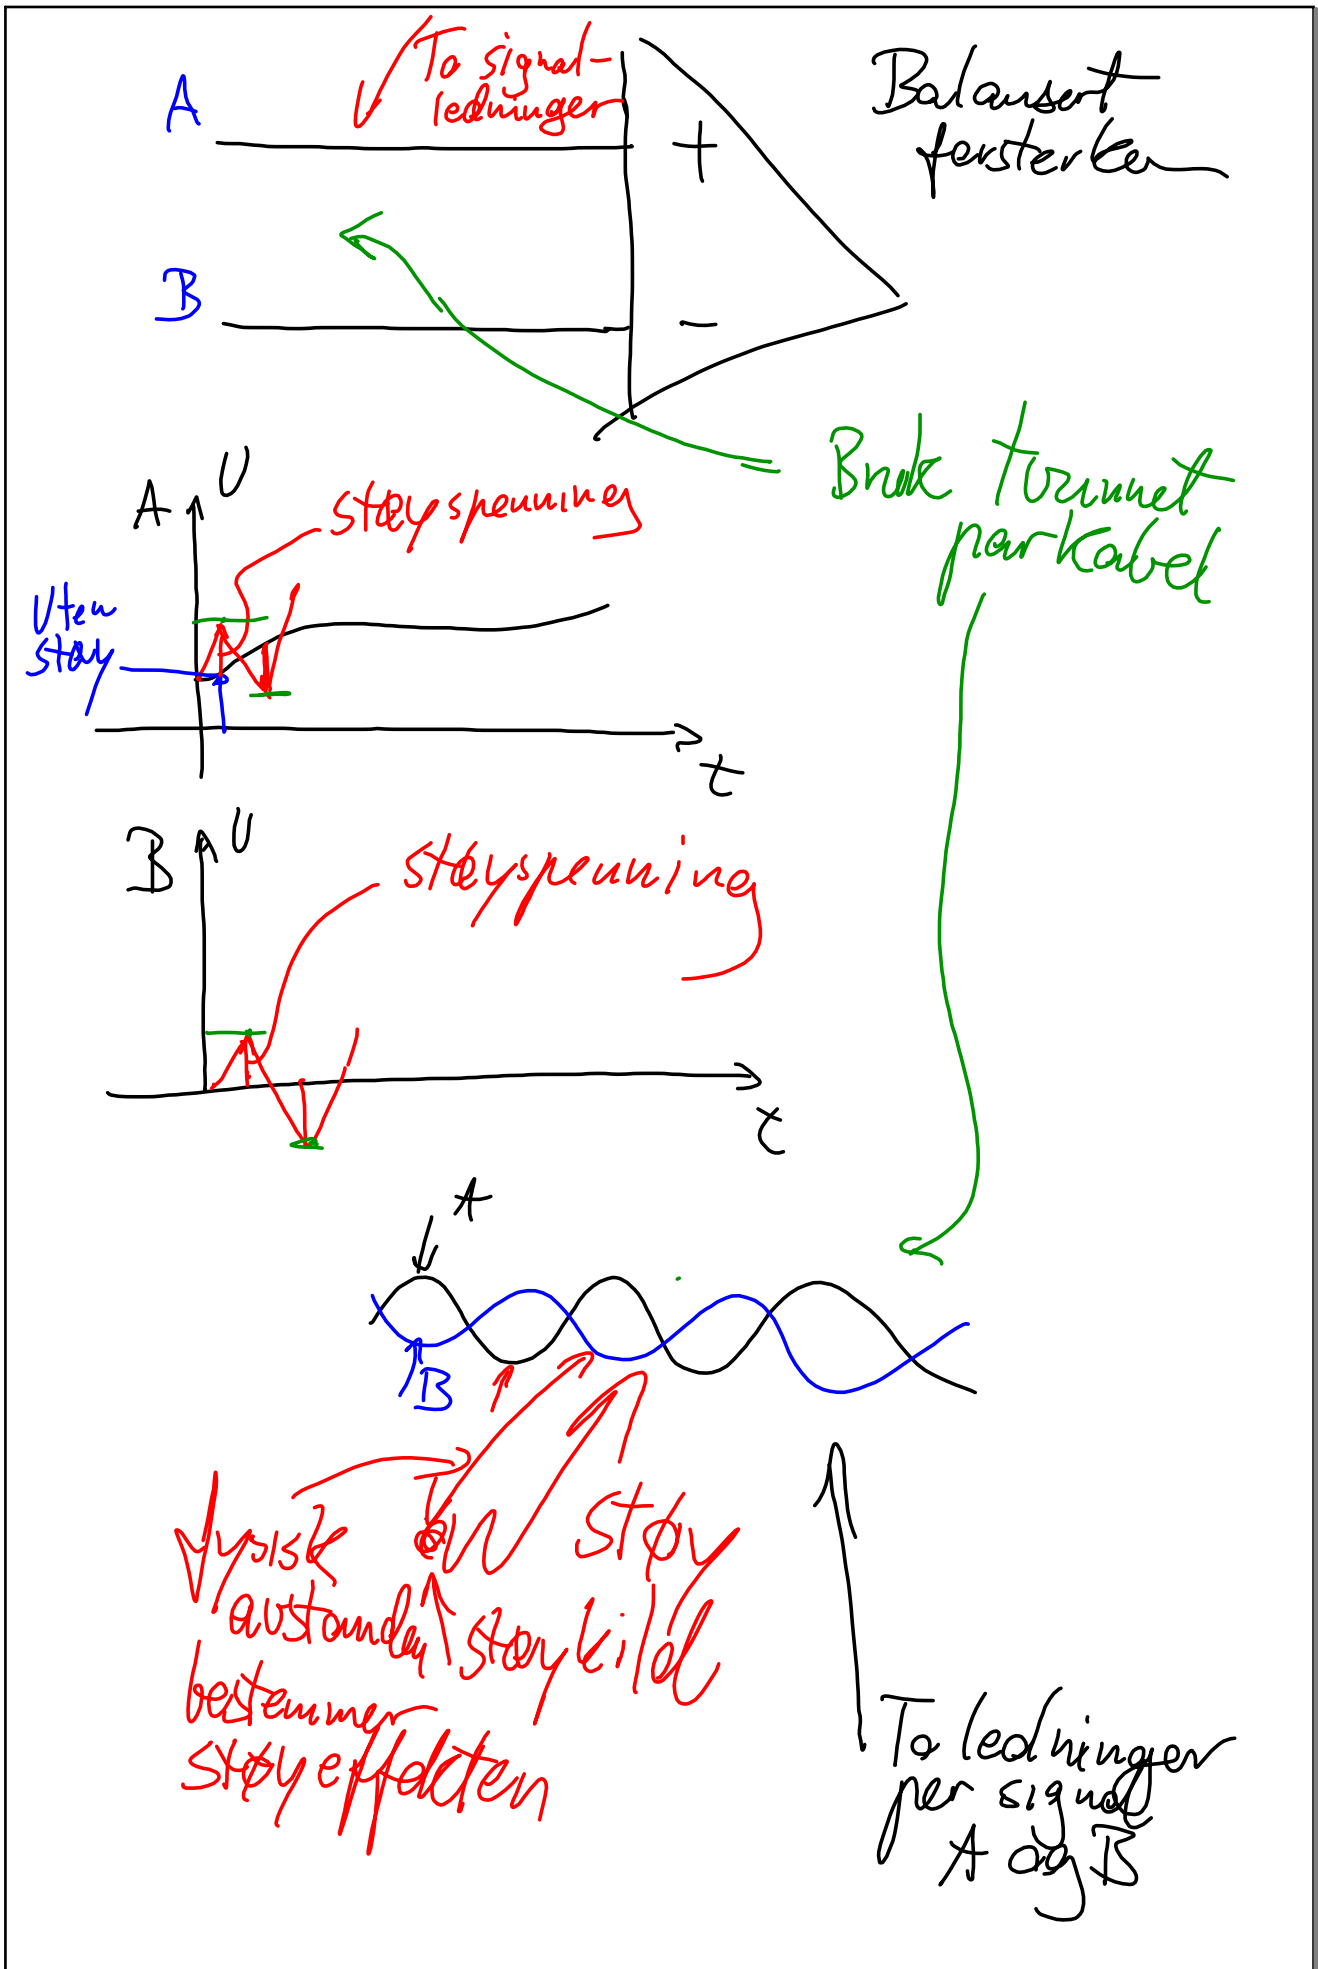 To signal-
ledninger
Balansert
forsterker
A
+
B
-
Bruk tvunnet
parkabel
A U
støyspenning
Uten
støy
t
B U
støyspenning
t
A
B
Fysisk
støy
avstanden
støykild
bestemmer
støyeffekten
To ledninger
per signal
A og B